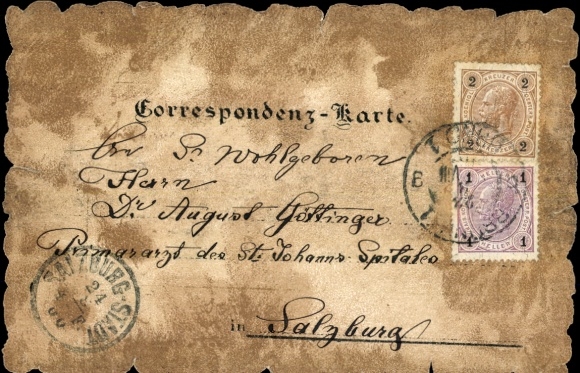 Correspondenz-Karte.
Sr. Wohlgeboren
Herrn
Dr. August Göttinger
Primararzt des St. Johanns-Spitales
in Salzburg
SALZBURG-STADT
2 2
2 2
1 1
1